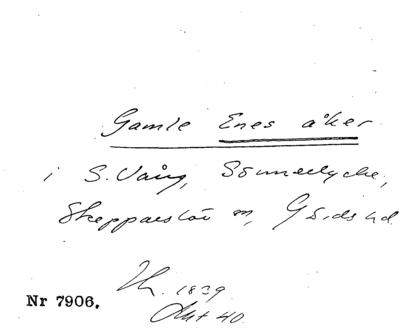 Gamle Enes åker
i S. Vång, Sönnerlycke,
Skepparslöv sn, Gärds hd.
1839
Nr 7906. Akt 40.